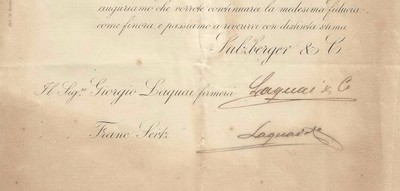 auguriamo che vorrete continuarci la medesima fiducia
come finora e passiamo a reverirvi con distinta stima
Sulzberger & C.
Il Sig.re Giorgio Laquai firmerà Laquai & C.
Franc Seck